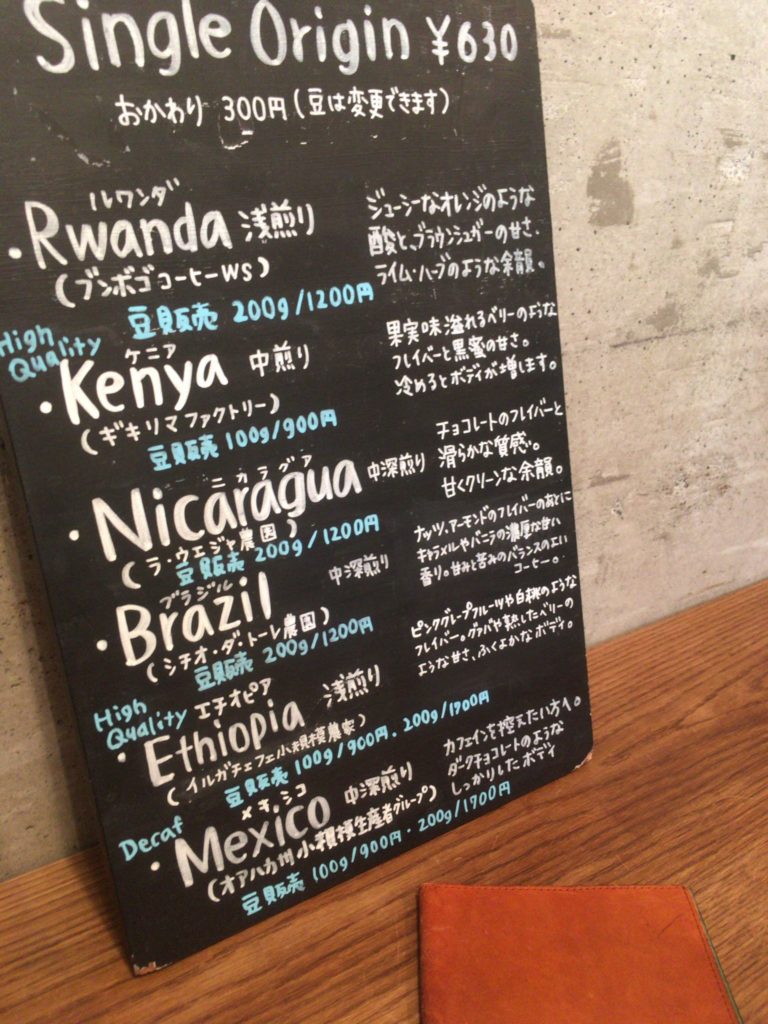 Single Origin ¥630
おかわり 300円(豆は変更できます)
ルワンダ
・Rwanda 浅煎り
(ブンボゴコーヒーWS)
豆販売 200g/1200円
ジューシーなオレンジのような
酸と、ブラウンシュガーの甘さ、
ライム・ハーブのような余韻。
High Quality
ケニア
・Kenya 中煎り
(ギキリマファクトリー)
豆販売 100g/900円
果実味溢れるベリーのような
フレイバーと黒蜜の甘さ。
冷めるとボディが増します。
ニカラグア
・Nicaragua 中深煎り
(ラ・ウエジャ農園)
豆販売 200g/1200円
チョコレートのフレイバーと
滑らかな質感。
甘くクリーンな余韻。
ブラジル
・Brazil 中深煎り
(シチオ・ダ・トーレ農園)
豆販売 200g/1200円
ナッツ、アーモンドのフレイバーのあとに
キャラメルやバニラの濃厚な甘い
香り。甘みと苦みのバランスのよい
コーヒー。
High Quality
エチオピア
・Ethiopia 浅煎り
(イルガチェフェ小規模農家)
豆販売 100g/900円・200g/1700円
ピンクグレープフルーツや白桃のような
フレイバー。グァバや熟したベリーの
ような甘さ、ふくよかなボディ。
Decaf
メキシコ
・Mexico 中深煎り
(オアハカ州小規模生産者グループ)
豆販売 100g/900円・200g/1700円
カフェインを控えたい方へ。
ダークチョコレートのような
しっかりしたボディ